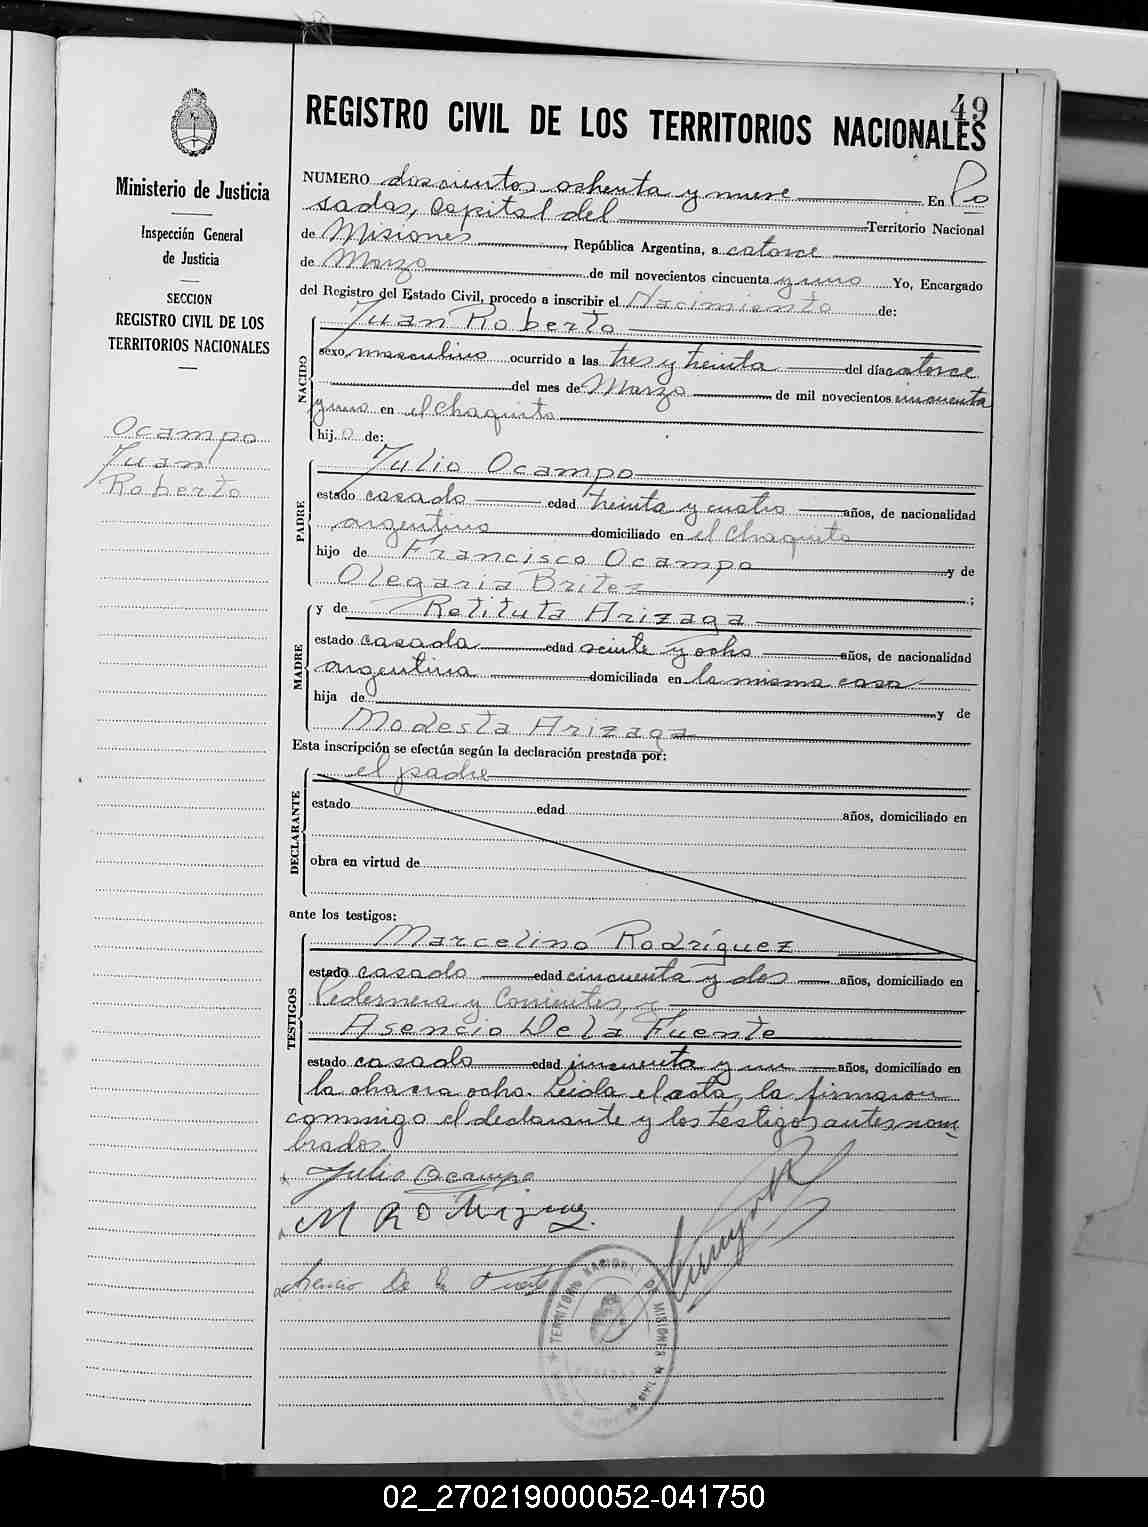 49
REGISTRO CIVIL DE LOS TERRITORIOS NACIONALES
Ministerio de Justicia
Inspección General
de Justicia
SECCION
REGISTRO CIVIL DE LOS
TERRITORIOS NACIONALES
Ocampo
Juan
Roberto
NUMERO doscientos ochenta y nueve En Po
sadas, Capital del Territorio Nacional
de Misiones, República Argentina, a catorce
de Marzo de mil novecientos cincuenta y uno Yo, Encargado
del Registro del Estado Civil, procedo a inscribir el Nacimiento de:
NACIDO
Juan Roberto
sexo, masculino ocurrido a las tres y treinta del día catorce
del mes de Marzo de mil novecientos cincuenta
y uno en el Chaquito
hijo de:
PADRE
Julio Ocampo
estado casado edad treinta y cuatro años, de nacionalidad
argentina domiciliado en el Chaquito
hijo de Francisco Ocampo y de
Olegaria Britez ;
MADRE
y de Retituta Arizaga
estado casada edad veinte y ocho años, de nacionalidad
argentina domiciliada en la misma casa
hija de y de
Modesta Arizaga
Esta inscripción se efectúa según la declaración prestada por:
DECLARANTE
el padre
estado edad años, domiciliado en
obra en virtud de
ante los testigos:
TESTIGOS
Marcelino Rodríguez
estado casado edad cincuenta y dos años, domiciliado en
Pedernera y Corrientes, y
Asencio De la Fuente
estado casado edad cincuenta y un años, domiciliado en
la chacra ocho. Leida el acta, la firmaron
conmigo el declarante y los testigos antes nom
brados.
Julio Ocampo
M Rodriguez
Asencio De la Fuente
TERRITORIO NACIONAL DE MISIONES
POSADAS
02_270219000052-041750